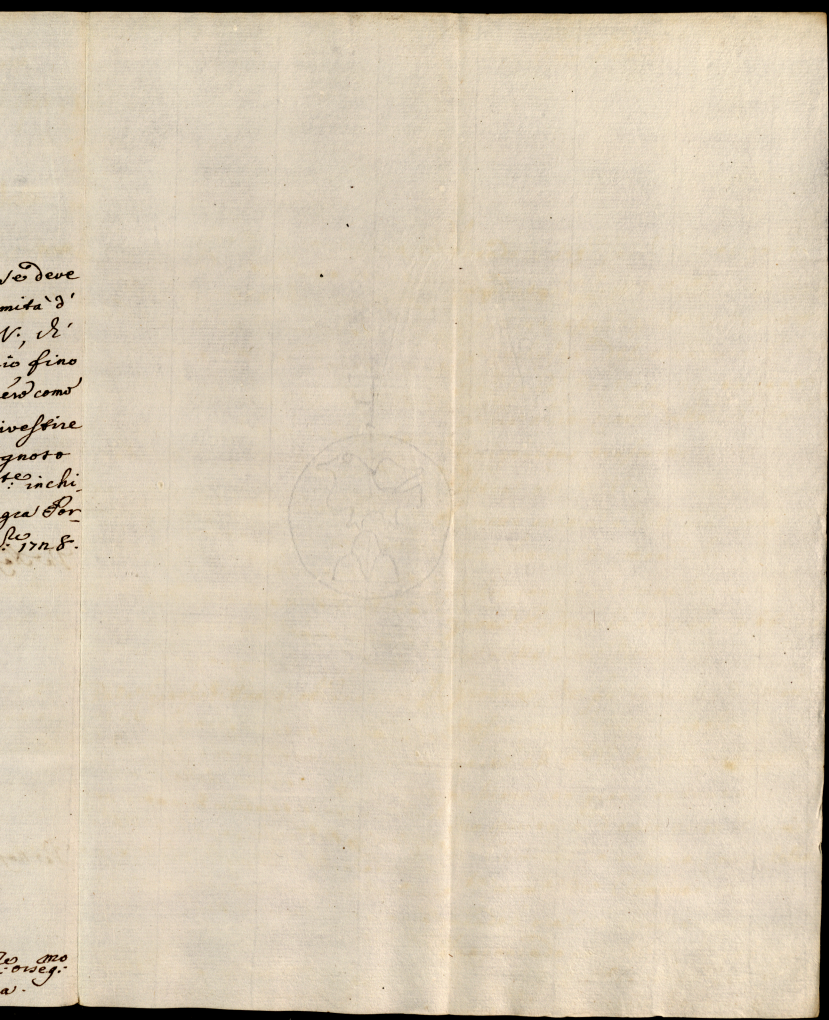 Se deve
mità d'
V:, di
io fino
però como
ivestire
gnoto
te: inchi-
gra Por-
1728.
mo
osseg:
a.